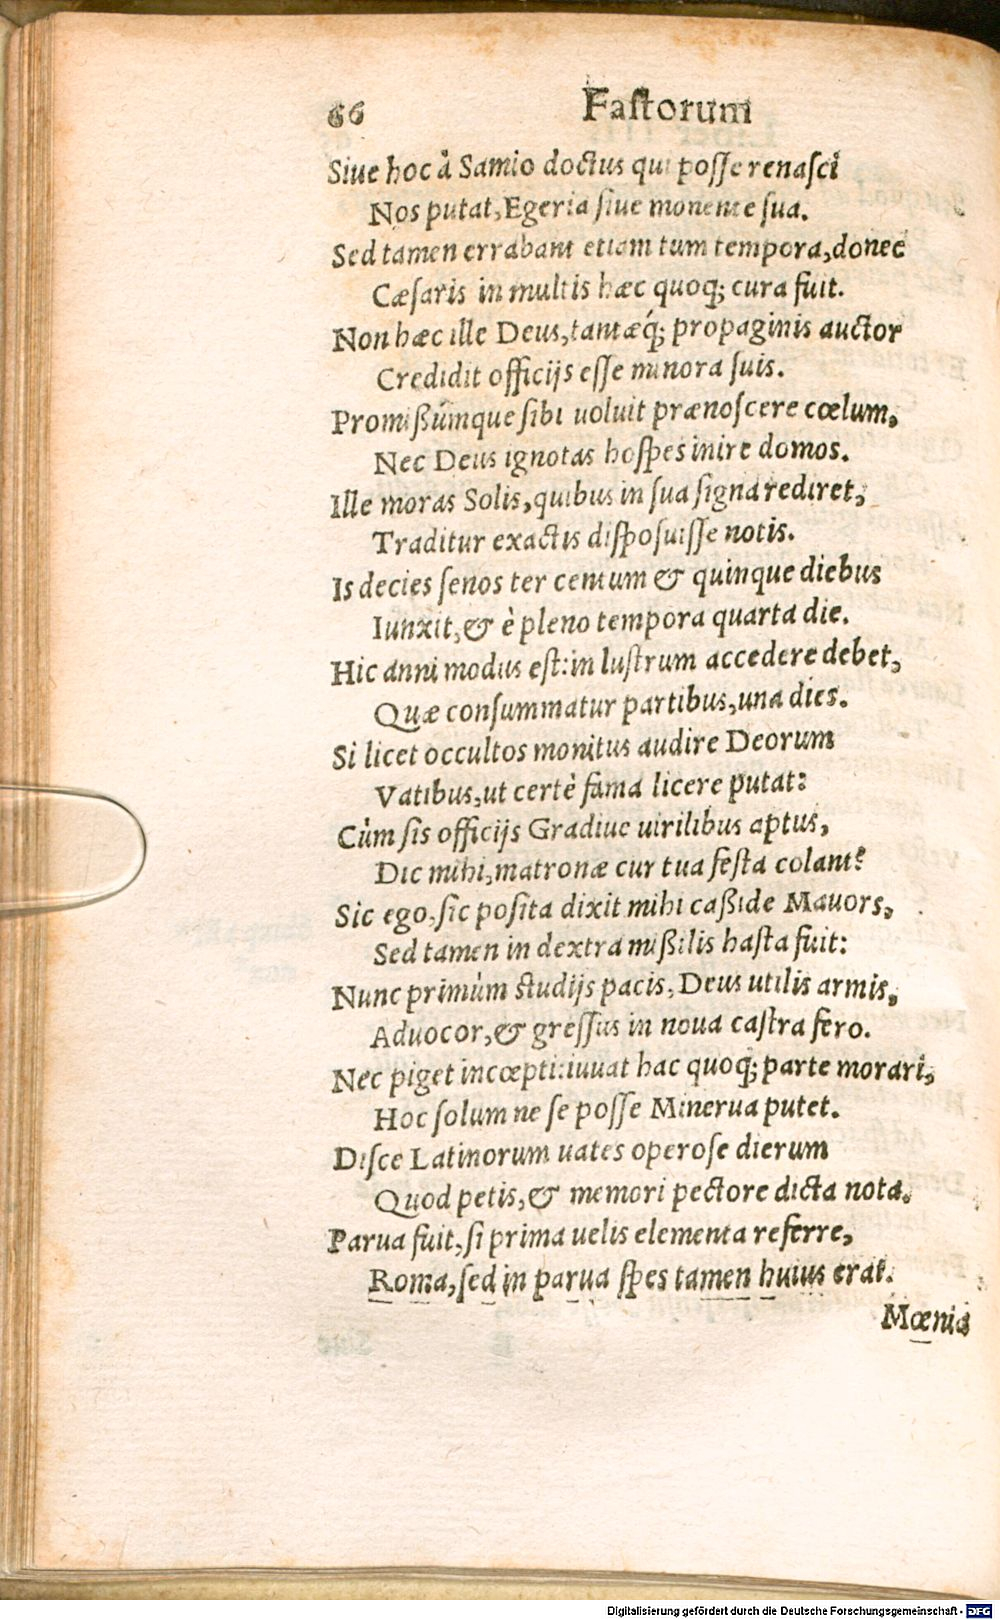 66 Faſtorum
Siue hoc à Samio doctus qui poſſe renaſci
Nos putat, Egeria ſiue monente ſua.
Sed tamen errabant etiam tum tempora, donec
Cæſaris in multis hæc quoq; cura fuit.
Non hæc ille Deus, tantæq́; propaginis auctor
Credidit officijs eſſe minora ſuis.
Promiſſúmque ſibi uoluit prænoſcere cœlum,
Nec Deus ignotas hoſpes inire domos.
Ille moras Solis, quibus in ſua ſigna rediret,
Traditur exactis diſpoſuiſſe notis.
Is decies ſenos ter centum & quinque diebus
Iunxit, & è pleno tempora quarta die.
Hic anni modus eſt: in luſtrum accedere debet,
Quæ conſummatur partibus, una dies.
Si licet occultos monitus audire Deorum
Vatibus, ut certè fama licere putat:
Cùm ſis officijs Gradiue uirilibus aptus,
Dic mihi, matronæ cur tua feſta colant?
Sic ego, ſic poſita dixit mihi caßide Mauors,
Sed tamen in dextra mißilis haſta fuit:
Nunc primùm ſtudijs pacis, Deus utilis armis,
Aduocor, & greſſus in noua caſtra fero.
Nec piget incœpti: iuuat hac quoq; parte morari,
Hoc ſolum ne ſe poſſe Minerua putet.
Diſce Latinorum uates operoſe dierum
Quod petis, & memori pectore dicta nota.
Parua fuit, ſi prima uelis elementa referre,
Roma, ſed in parua ſpes tamen huius erat.
Mœnia
Digitalisierung gefördert durch die Deutsche Forschungsgemeinschaft - DFG